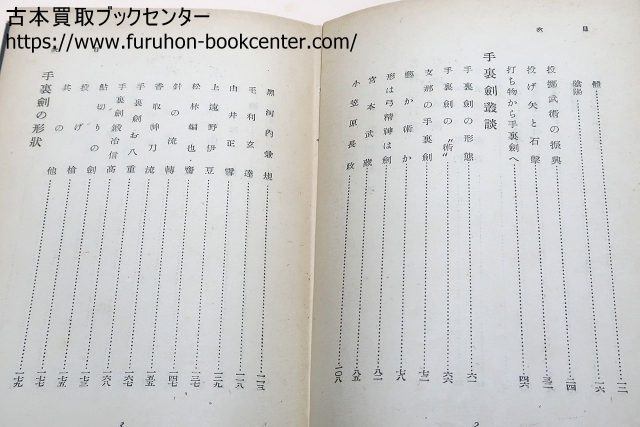 古本買取ブックセンター
https://www.furuhon-bookcenter.com/
目次
陰陽 一六
投擲武術の振興 二四
投げ矢と石擊 三二
打ち物から手裏劍へ 四六
手裏劍叢談
手裏劍の形態 六二
手裏劍の〝術〟 六六
支那の手裏劍 七二
藝か術か 七八
形は弓精神は劍 八一
宮本武藏 八二
小笠原長政 一〇八
黑河內兼規 一一三
毛利玄達 一一八
由井正雪 一二八
上遠野伊豆 一二九
松林蝙也齋 一三七
針の流轉 一四七
香取神刀流 一五四
手裏劍お八重 一六七
手裏劍鍛冶信高 一六八
鮎切りの劍 一七三
投げ槍 一七五
其の他 一七七
手裏劍の形狀 一七九